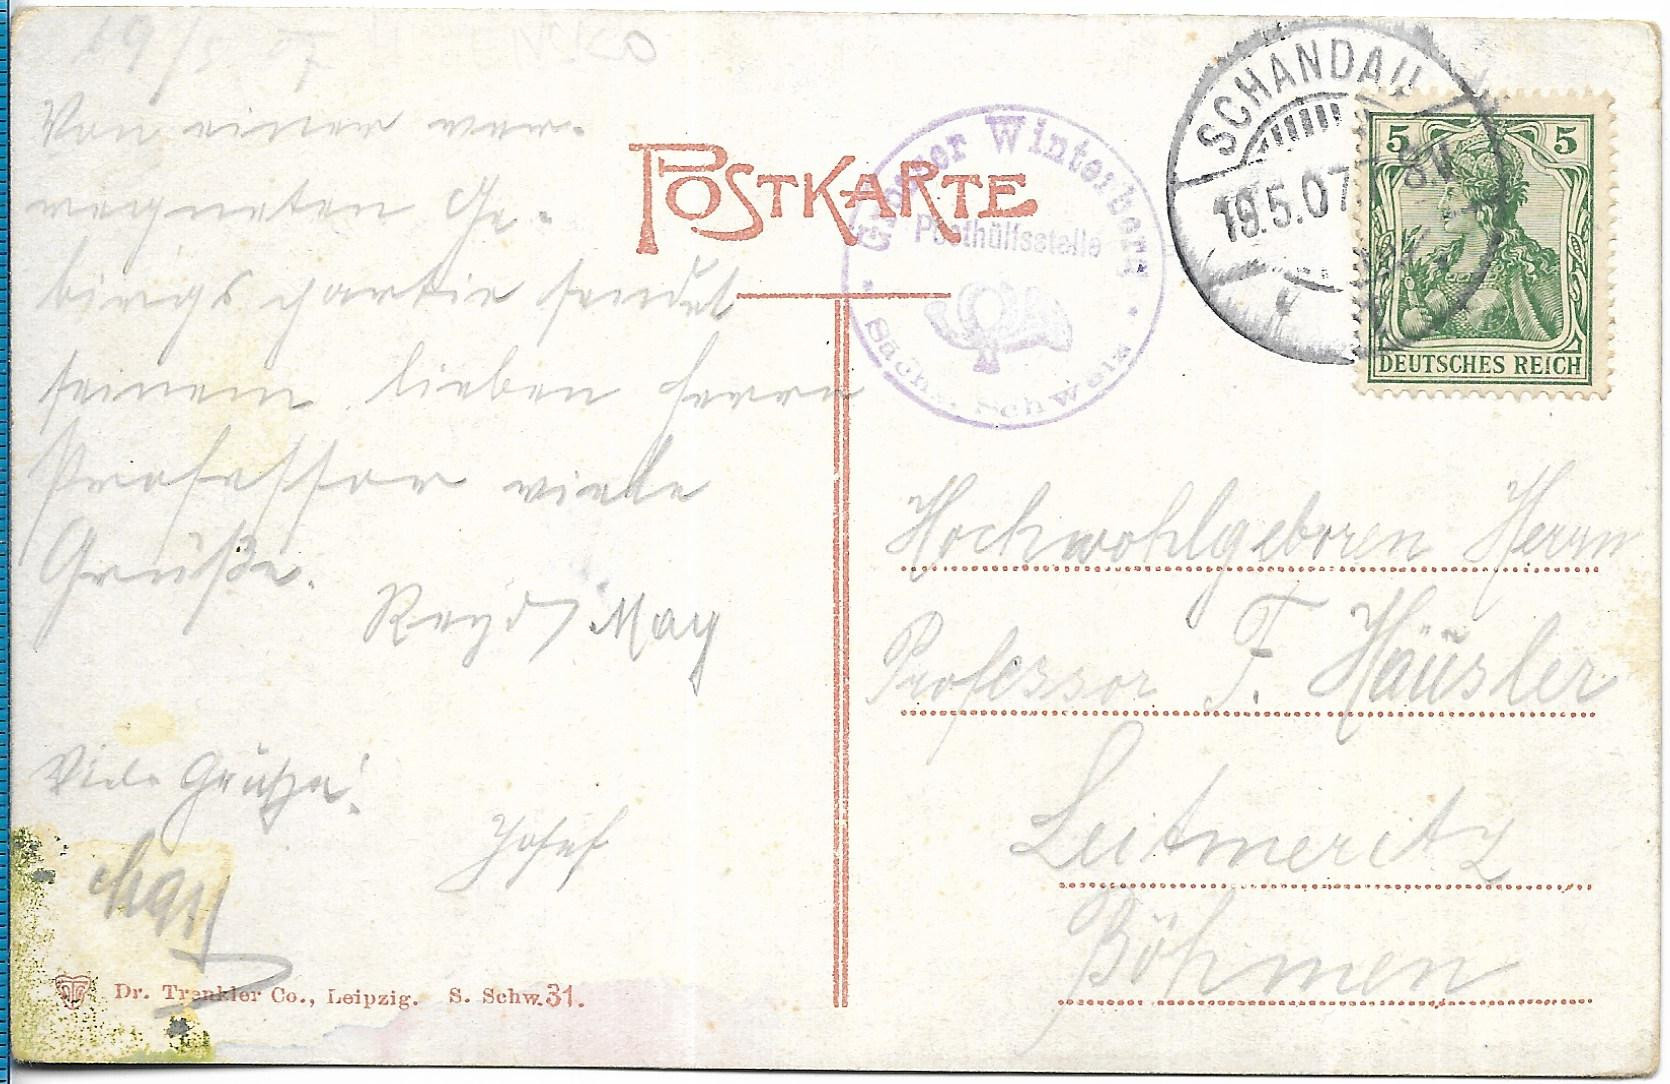 19/5 07
Von einer ver-
regneten Ge-
birgspartie sendet
seinem lieben Herrn
Professor viele
Grüße.
May
Viele Grüße!
Josef
Dr. Trenkler Co., Leipzig. S. Schw. 31.
POSTKARTE
Großer Winterberg
Posthülfsstelle
Sächs. Schweiz
SCHANDAU
19.5.07
5 5
DEUTSCHES REICH
Hochwohlgeboren Herrn
Professor F. Häusler
Leitmeritz
Böhmen